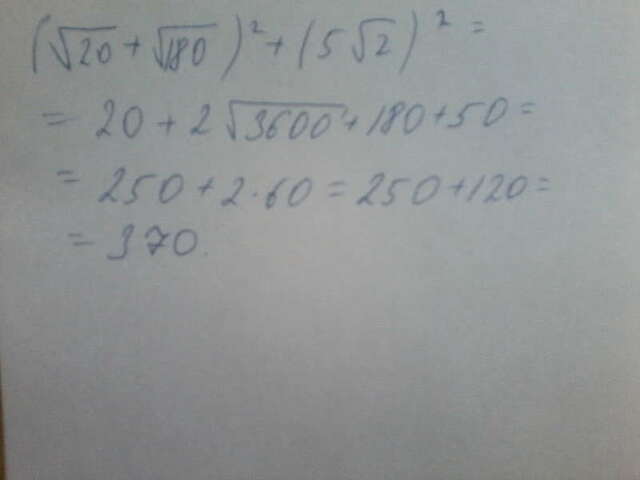 (√20 + √180)² + (5√2)² =
= 20 + 2√3600 + 180 + 50 =
= 250 + 2·60 = 250 + 120 =
= 370.